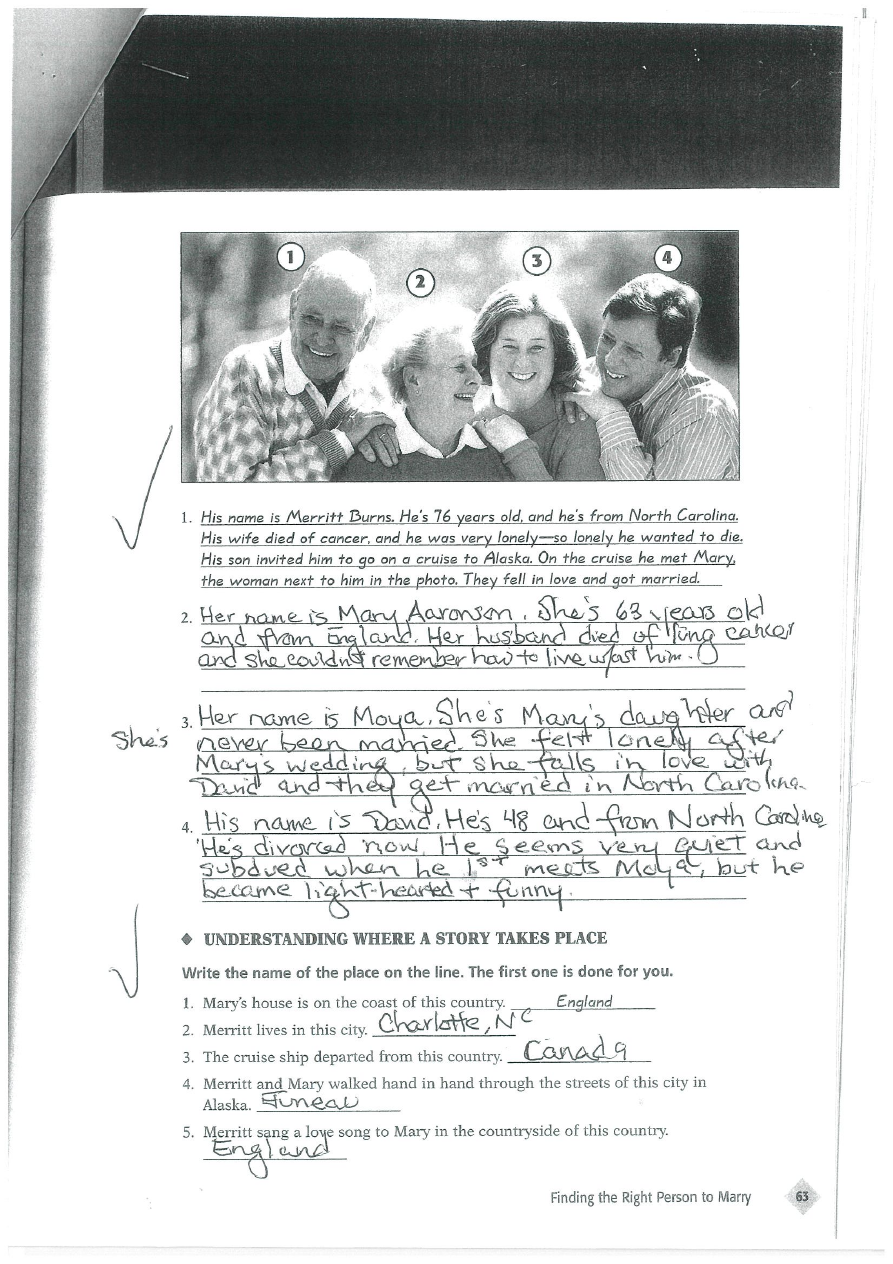 1
2
3
4
1. His name is Merritt Burns. He's 76 years old, and he's from North Carolina.
His wife died of cancer, and he was very lonely—so lonely he wanted to die.
His son invited him to go on a cruise to Alaska. On the cruise he met Mary,
the woman next to him in the photo. They fell in love and got married.
2. Her name is Mary Aaronson. She's 63 years old
and from England. Her husband died of lung cancer
and she couldn't remember how to live w/ast him.
3. Her name is Moya. She's Mary's daughter and
She's never been married. She felt lonely after
Mary's wedding, but she falls in love with
David and they get married in North Carolina.
4. His name is David. He's 48 and from North Carolina
He's divorced now. He seems very quiet and
subdued when he 1st meets Moya, but he
became light-hearted + funny.
◆ UNDERSTANDING WHERE A STORY TAKES PLACE
Write the name of the place on the line. The first one is done for you.
1. Mary's house is on the coast of this country. England
2. Merritt lives in this city. Charlotte, NC
3. The cruise ship departed from this country. Canada
4. Merritt and Mary walked hand in hand through the streets of this city in
Alaska. Juneau
5. Merritt sang a love song to Mary in the countryside of this country.
England
Finding the Right Person to Marry 63